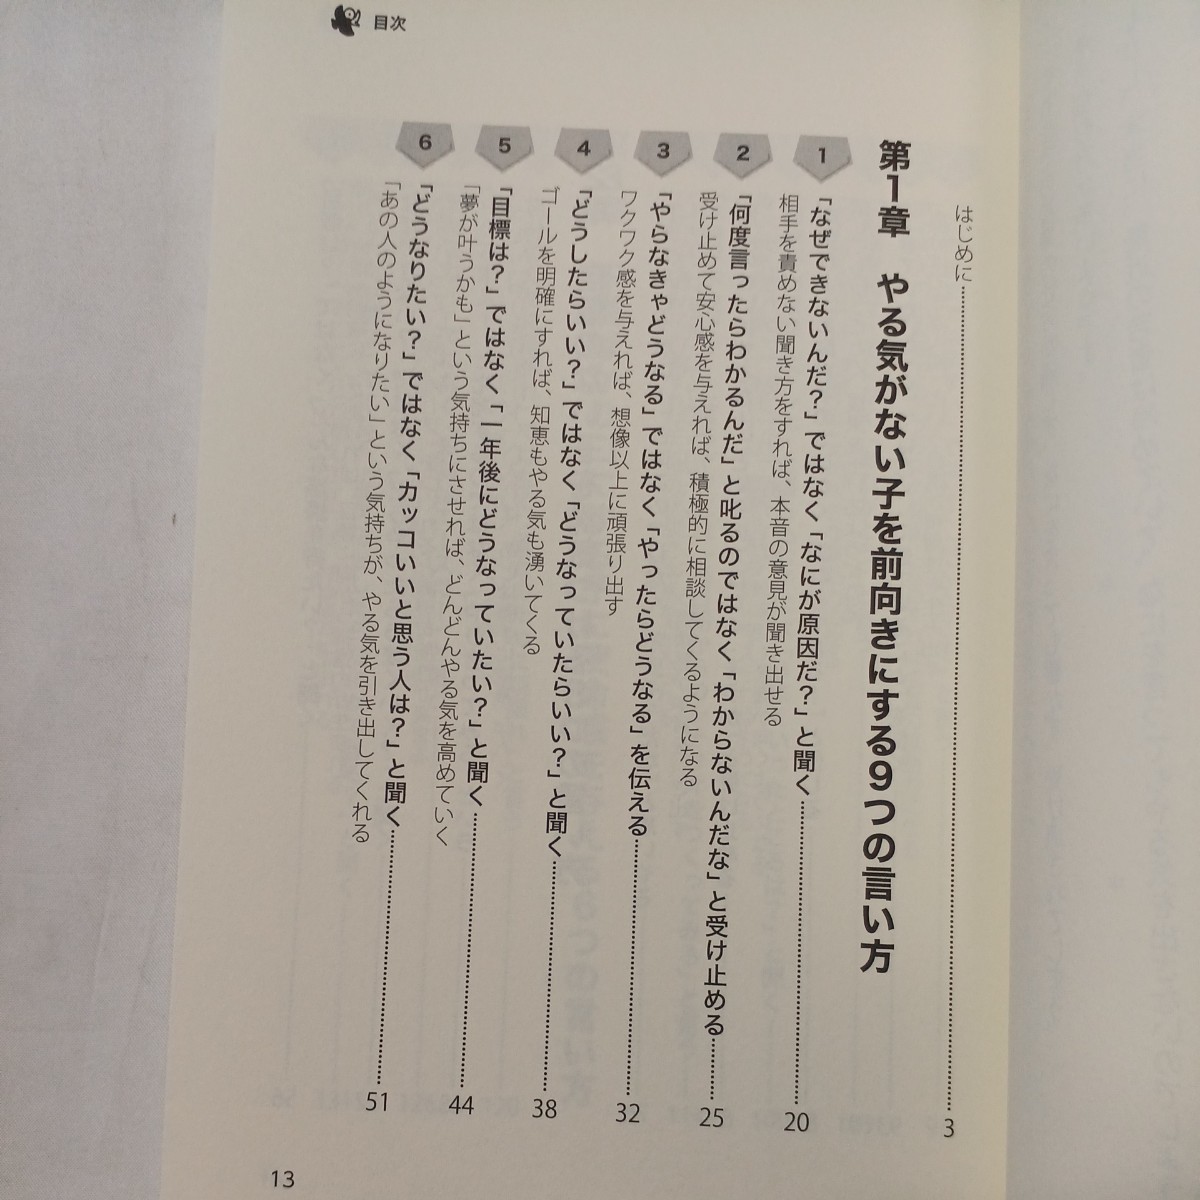 目次
はじめに 3
第1章 やる気がない子を前向きにする9つの言い方
1 「なぜできないんだ?」ではなく「なにが原因だ?」と聞く 20
相手を責めない聞き方をすれば、本音の意見が聞き出せる
2 「何度言ったらわかるんだ」と叱るのではなく「わからないんだな」と受け止める 25
受け止めて安心感を与えれば、積極的に相談してくるようになる
3 「やらなきゃどうなる」ではなく「やったらどうなる」を伝える 32
ワクワク感を与えれば、想像以上に頑張り出す
4 「どうしたらいい?」ではなく「どうなっていたらいい?」と聞く 38
ゴールを明確にすれば、知恵もやる気も湧いてくる
5 「目標は?」ではなく「一年後にどうなっていたい?」と聞く 44
「夢が叶うかも」という気持ちにさせれば、どんどんやる気を高めていく
6 「どうなりたい?」ではなく「カッコいいと思う人は?」と聞く 51
「あの人のようになりたい」という気持ちが、やる気を引き出してくれる
13